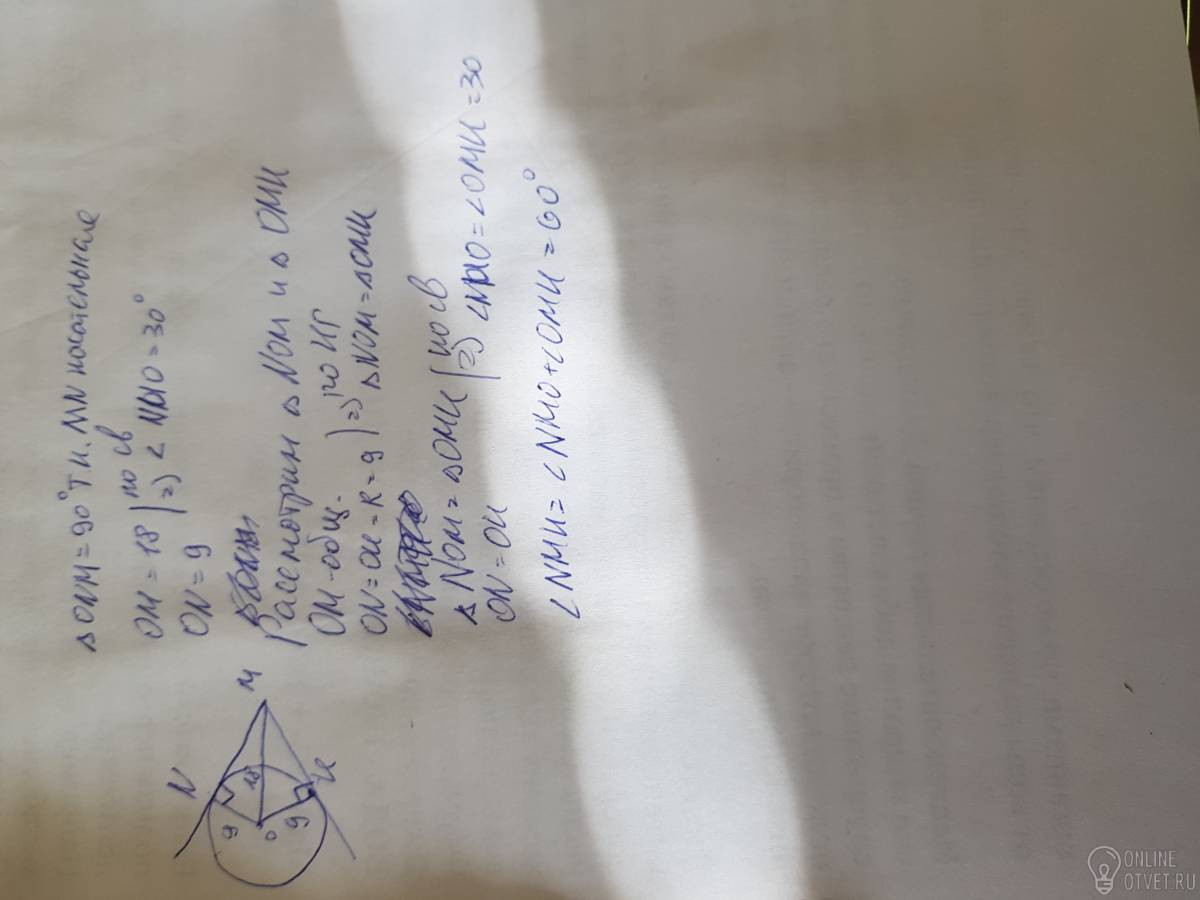 N
M
K
O
9
18
9
△ONM = 90° т.к. MN касательная
OM = 18 | по св
ON = 9 | => ∠NMO = 30°
Расмотрим △ NOM и △ OMK
OM - общ.
ON = OK = R = 9 | => по КГ
△NOM = △OMK
△ NOM = △OMK | по св
ON = OK | => ∠NMO = ∠OMK = 30
∠NMK = ∠NMO + ∠OMK = 60°
ONLINE
OTVET.RU